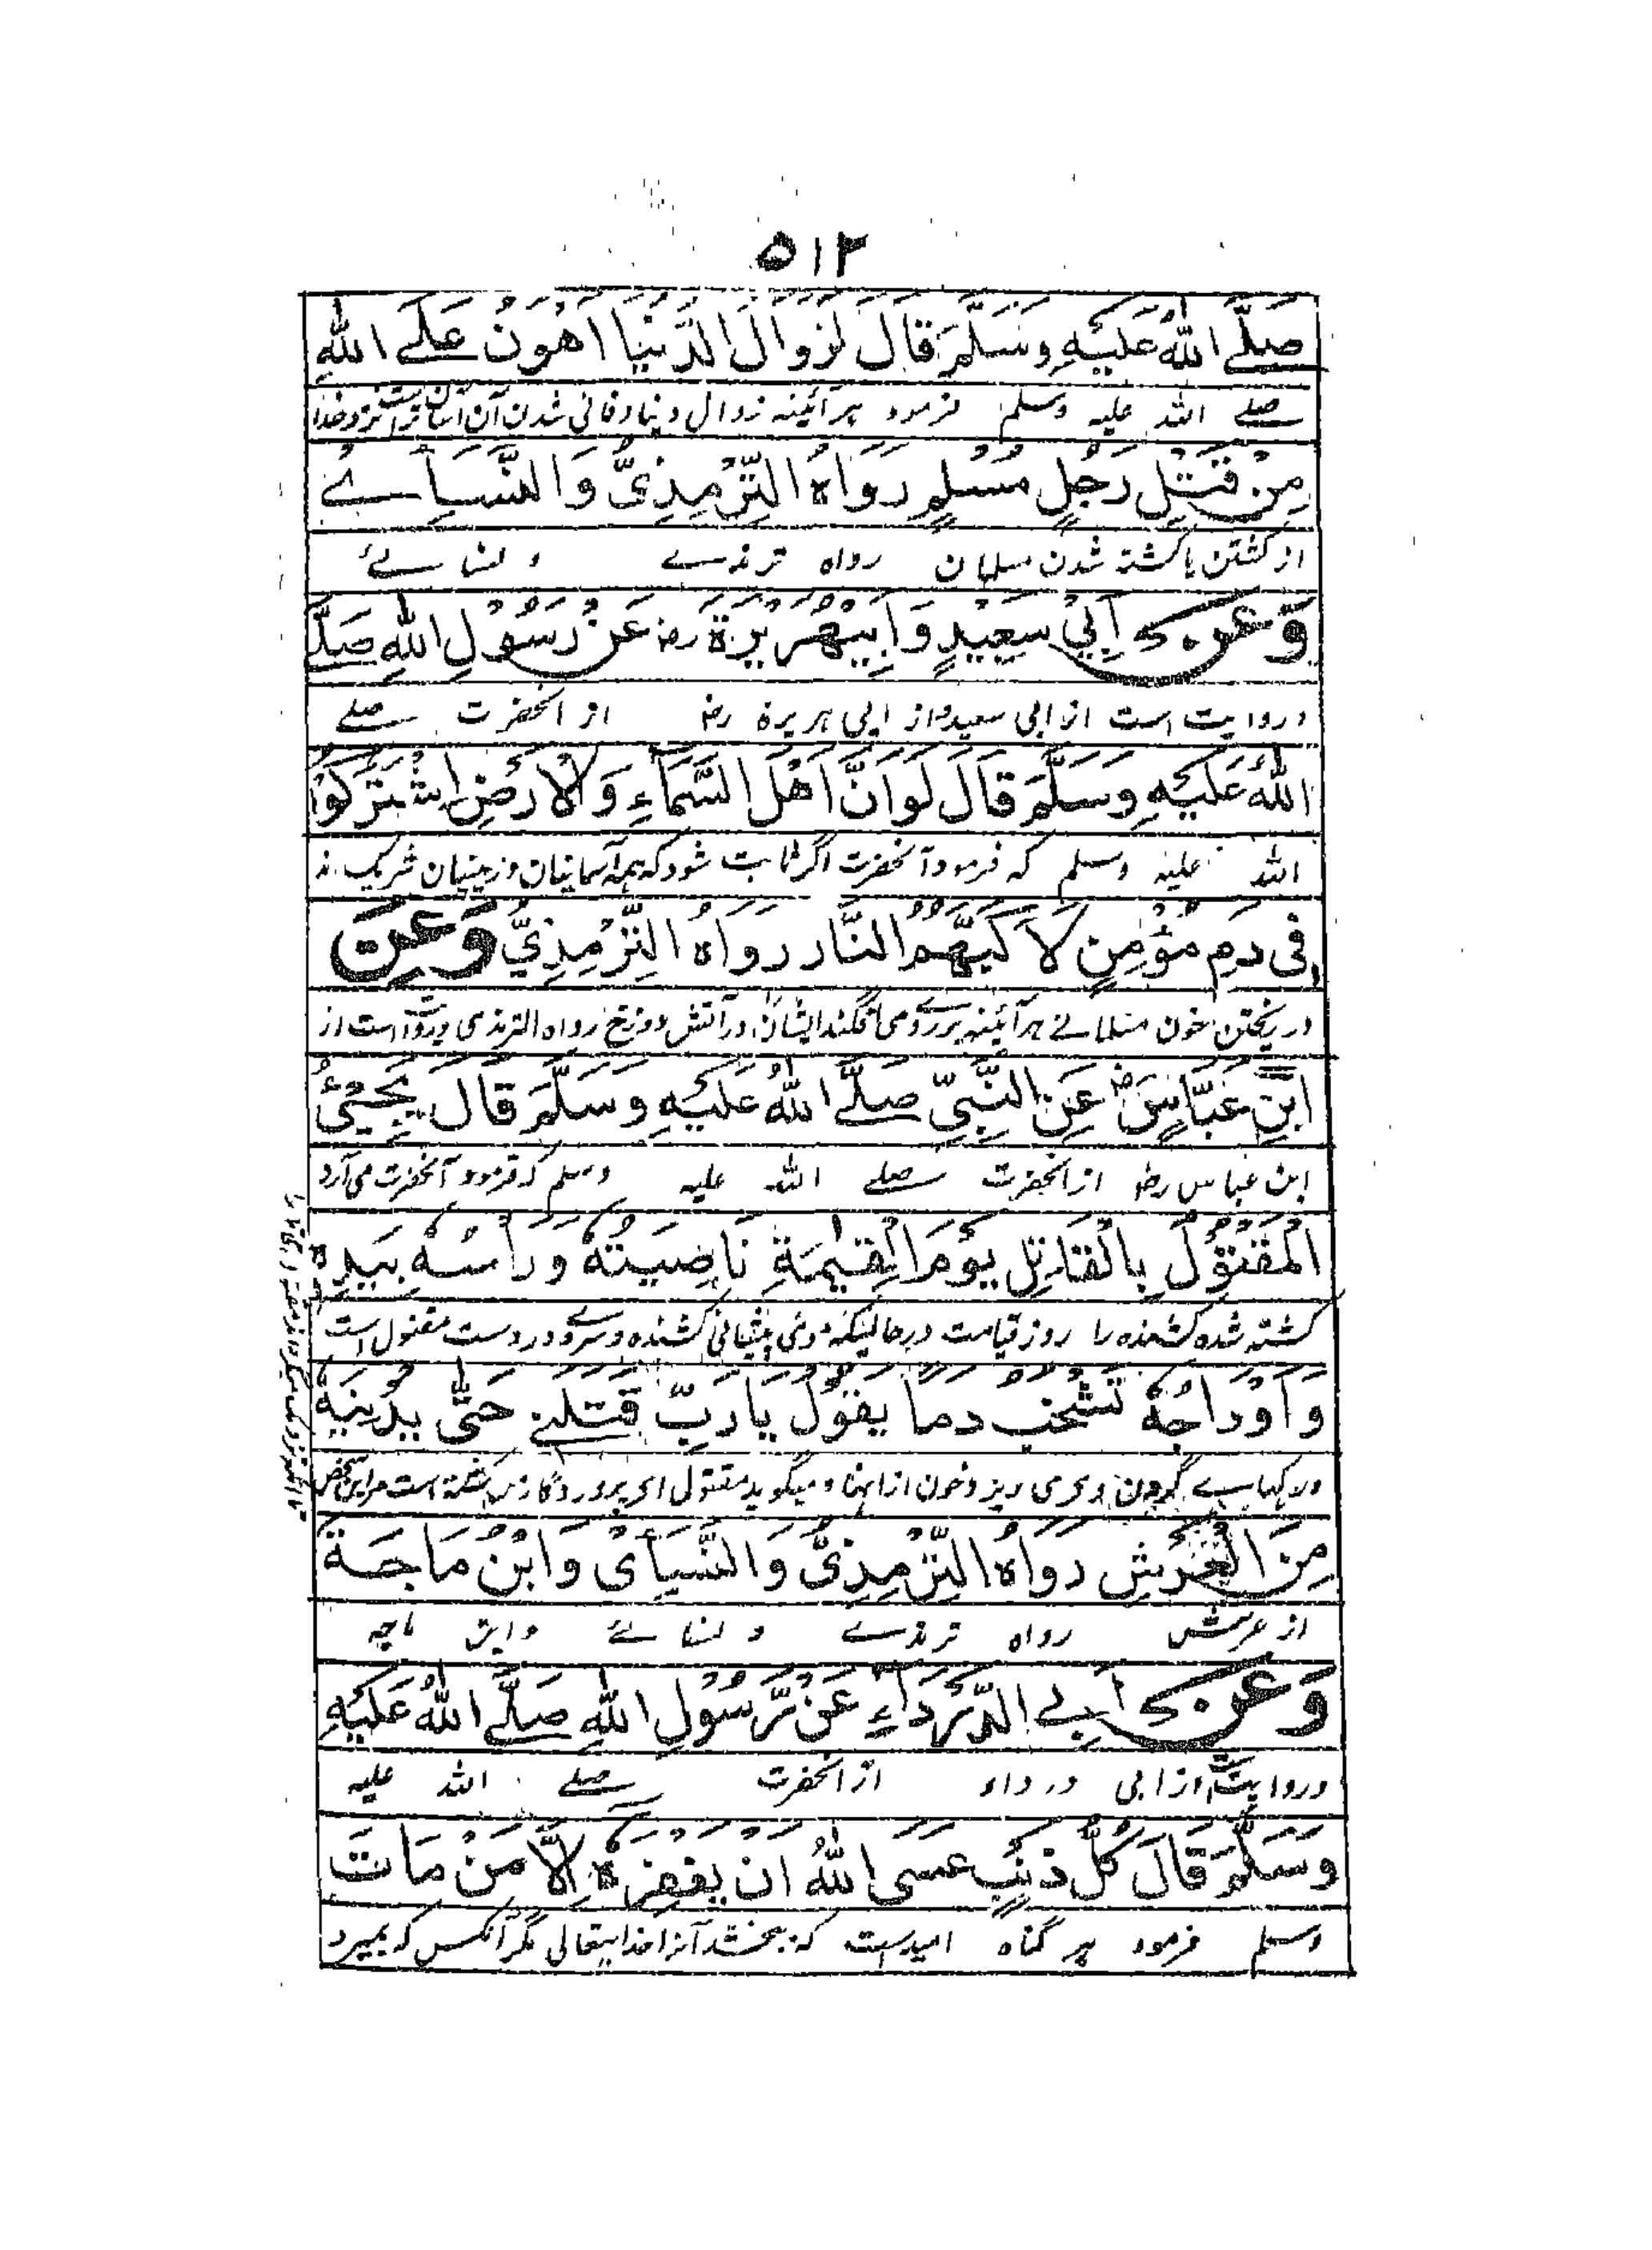 ۵۱۲
صَلَّے اللهُ عَلَيْهِ وَسَلَّمَ قَالَ لَزَوَالُ الدُّنْيَا اَهْوَنُ عَلَے اللهِ
صلے الله علیه وسلم فرمود هر آئینه زوال دنیا و فانی شدن آن آسان تر است نزد خدا
مِنْ قَتْلِ رَجُلٍ مُسْلِمٍ رَوَاهُ التِّرْمِذِيُّ وَالنَّسَاَئےُ
از کشتن یا کشته شدن مسلمان رواه ترمذے و نسائےُ
وَعَنْ اَبِيْ سَعِيْدٍ وَاَبِيْهُرَيْرَةَ رض عَنْ رَسُوْلِ اللهِ صَلَّے
و روایت است از ابی سعید و از ابی هریرة رض از آنحضرت صلے
اللهُ عَلَيْهِ وَسَلَّمَ قَالَ لَوْ اَنَّ اَهْلَ السَّمَآءِ وَالْاَرْضِ اشْتَرَكُوْا
الله علیه وسلم که فرمود آنحضرت اگر ثابت شود که همه آسمانیان و زمینیان شریک
فِى دَمِ مُؤْمِنٍ لَاَكَبَّهُمُ النَّار رَوَاهُ التِّرْمِذِيُّ وَعَنِ
در ریختن خون مسلمانے هر آئینه بر روے می افگند ایشان را در آتش دوزخ رواه الترمذی و روایت است از
ابْنِ عَبَّاسٍ رض عَنِ النَّبِيِّ صَلَّے اللهُ عَلَيْهِ وَسَلَّمَ قَالَ يَجِيْئُ
ابن عباس رض از آنحضرت صلے الله علیه وسلم که فرمود آنحضرت می آرد
الْمَقْتُوْلُ بِالْقَاتِلِ يَوْمَ الْقِيٰمَةِ نَاصِيَتُهُ وَرَأْسُهُ بِيَدِهِ
کشته شده کشنده را روز قیامت در حالیکه موی پیشانی کشنده و سر وے در دست مقتول است
وَاَوْدَاجُهُ تَشْخَبُ دَمًا يَقُوْلُ يَا رَبِّ قَتَلَنِے حَتّٰى يُدْنِيَهُ
و رگهاے گردن وی می ریزد خون از آنها و میگوید مقتول اے پروردگار من کشته است مرا این شخص
مِنَ الْعَرْشِ رَوَاهُ التِّرْمِذِىُّ وَالنَّسَاَئِىُ وَابْنُ مَاجَةَ
از عرش رواه ترمذے و نسائےُ و ابن ماجه
وَعَنْ اَبِے الدَّرْدَآءِ عَنْ رَّسُوْلِ اللهِ صَلَّے اللهُ عَلَيْهِ
و روایت است از ابی درداء از آنحضرت صلے الله علیه
وَسَلَّمَ قَالَ كُلُّ ذَنْبٍ عَسَى اللهُ اَنْ يَغْفِرَهُ اِلَّا مَنْ مَاتَ
وسلم فرمود هر گناه امید است که ببخشد آنرا خدایتعالی مگر آنکس که بمیرد